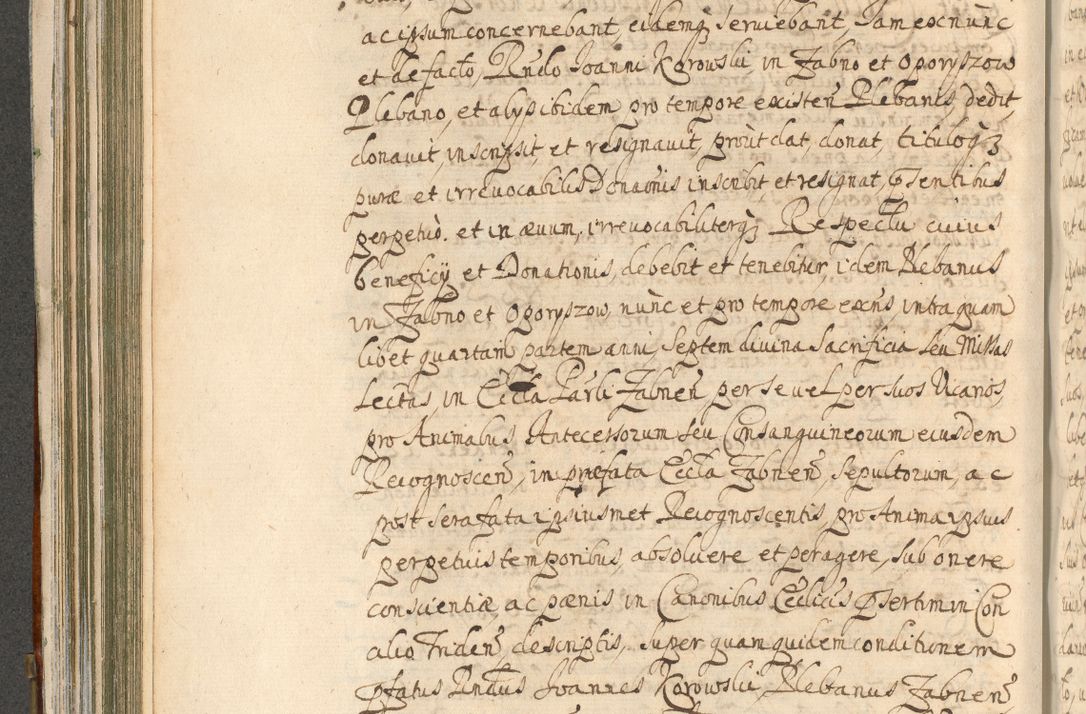 ac ipsum concernebant, eidemq; serviebant, Iam ex nunc
et de facto, Rndo Ioanni Korowski in Zabno et Ogoryszow
Plebano, et alys ibidem pro tempore existen Plebanis dedit,
donavit, inscripsit, et resignavit, prout dat, donat, tituloq;
puræ et irrevocabilis Donaonis inscribit, et resignat, Psentibus
perpetuò, et in ævum, irrevocabiliterq; Respectu cuius
beneficÿ et Donationis, debebit et tenebitur, idem Plebanus
in Zabno et Ogoryszow, nunc et pro tempore exens, intra quam
libet quartam partem anni, Septem divina Sacrificia seu Missas
Lectas, in Eccla Parli Zabnen per se vel per suos Vicarios,
pro Animabus Antecessorum seu Consanguineorum eiusdem
Recognoscen, in præfata Eccla Zabnen Sepultorum, ac
post sera fata ipsiusmet Recognoscentis, pro Anima ipsius
perpetuis temporibus, absolvere et peragere, sub onere
conscientiæ ac pænis in Canonibus Ecclicis Psertim in Con
cilio Triden, descriptis, Super quam quidem conditionem
Pfatus Rndus Ioannes Korowski, Plebanus Zabnen